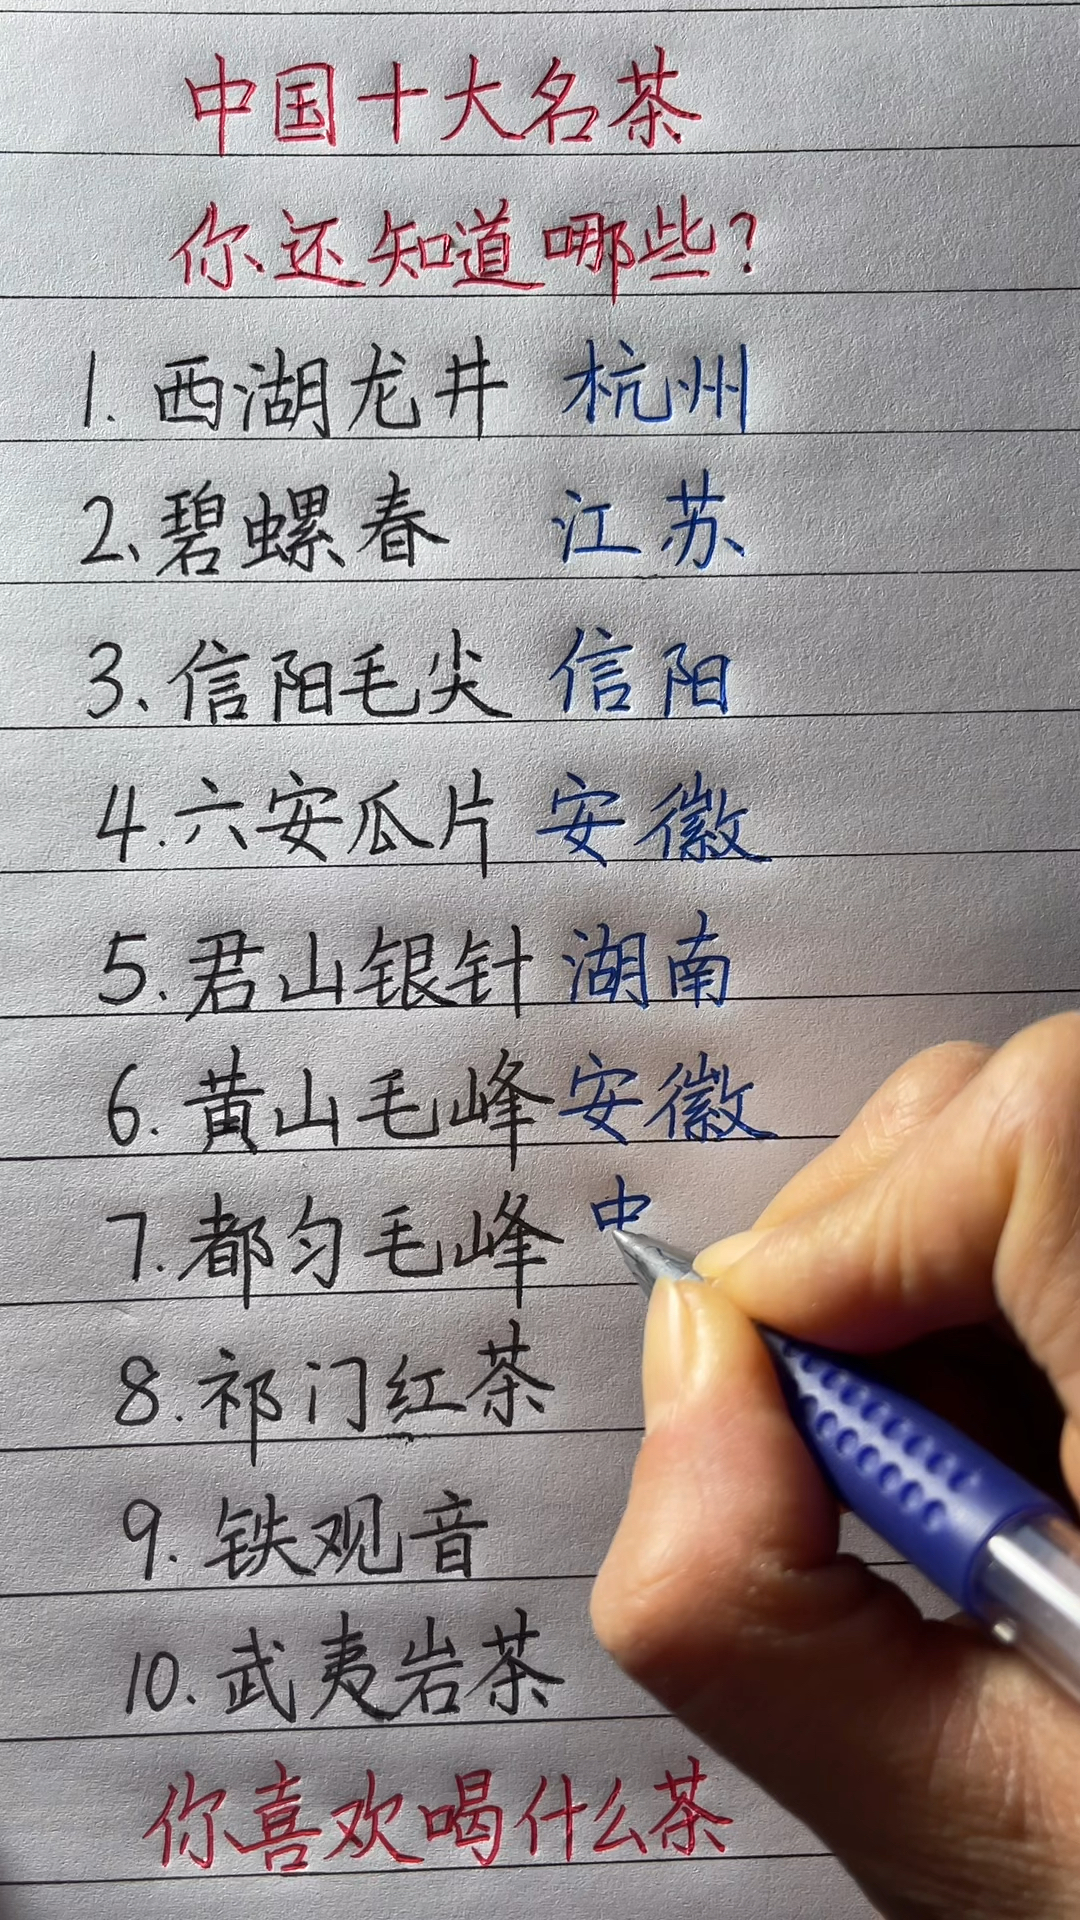 中国十大名茶
你还知道哪些?
1.西湖龙井 杭州
2、碧螺春 江苏
3、信阳毛尖 信阳
4.六安瓜片 安徽
5.君山银针 湖南
6.黄山毛峰 安徽
7.都匀毛峰 中
8.祁门红茶
9.铁观音
10.武夷岩茶
你喜欢喝什么茶